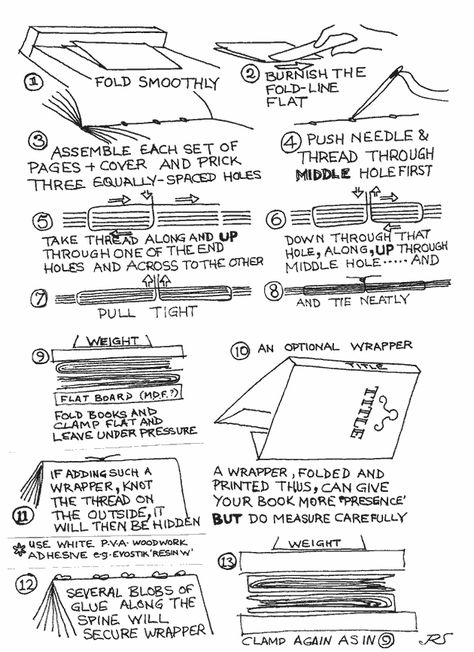 1 FOLD SMOOTHLY
2 BURNISH THE
FOLD-LINE
FLAT
3 ASSEMBLE EACH SET OF
PAGES + COVER AND PRICK
THREE EQUALLY-SPACED HOLES
4 PUSH NEEDLE &
THREAD THROUGH
MIDDLE HOLE FIRST
5
TAKE THREAD ALONG AND UP
THROUGH ONE OF THE END
HOLES AND ACROSS TO THE OTHER
6
DOWN THROUGH THAT
HOLE, ALONG, UP THROUGH
MIDDLE HOLE ..... AND
7
PULL TIGHT
8
AND TIE NEATLY
9 WEIGHT
FLAT BOARD (M.D.F.?)
FOLD BOOKS AND
CLAMP FLAT AND
LEAVE UNDER PRESSURE
10 AN OPTIONAL WRAPPER
TITLE
TITLE
A WRAPPER, FOLDED AND
PRINTED THUS, CAN GIVE
YOUR BOOK MORE 'PRESENCE'
BUT DO MEASURE CAREFULLY
11
IF ADDING SUCH A
WRAPPER, KNOT
THE THREAD ON
THE OUTSIDE, IT
WILL THEN BE HIDDEN
* USE WHITE P.V.A. WOODWORK
ADHESIVE e.g. EVOSTIK 'RESIN W'
12
SEVERAL BLOBS OF
GLUE ALONG THE
SPINE WILL
SECURE WRAPPER
13 WEIGHT
CLAMP AGAIN AS IN 9
JRS